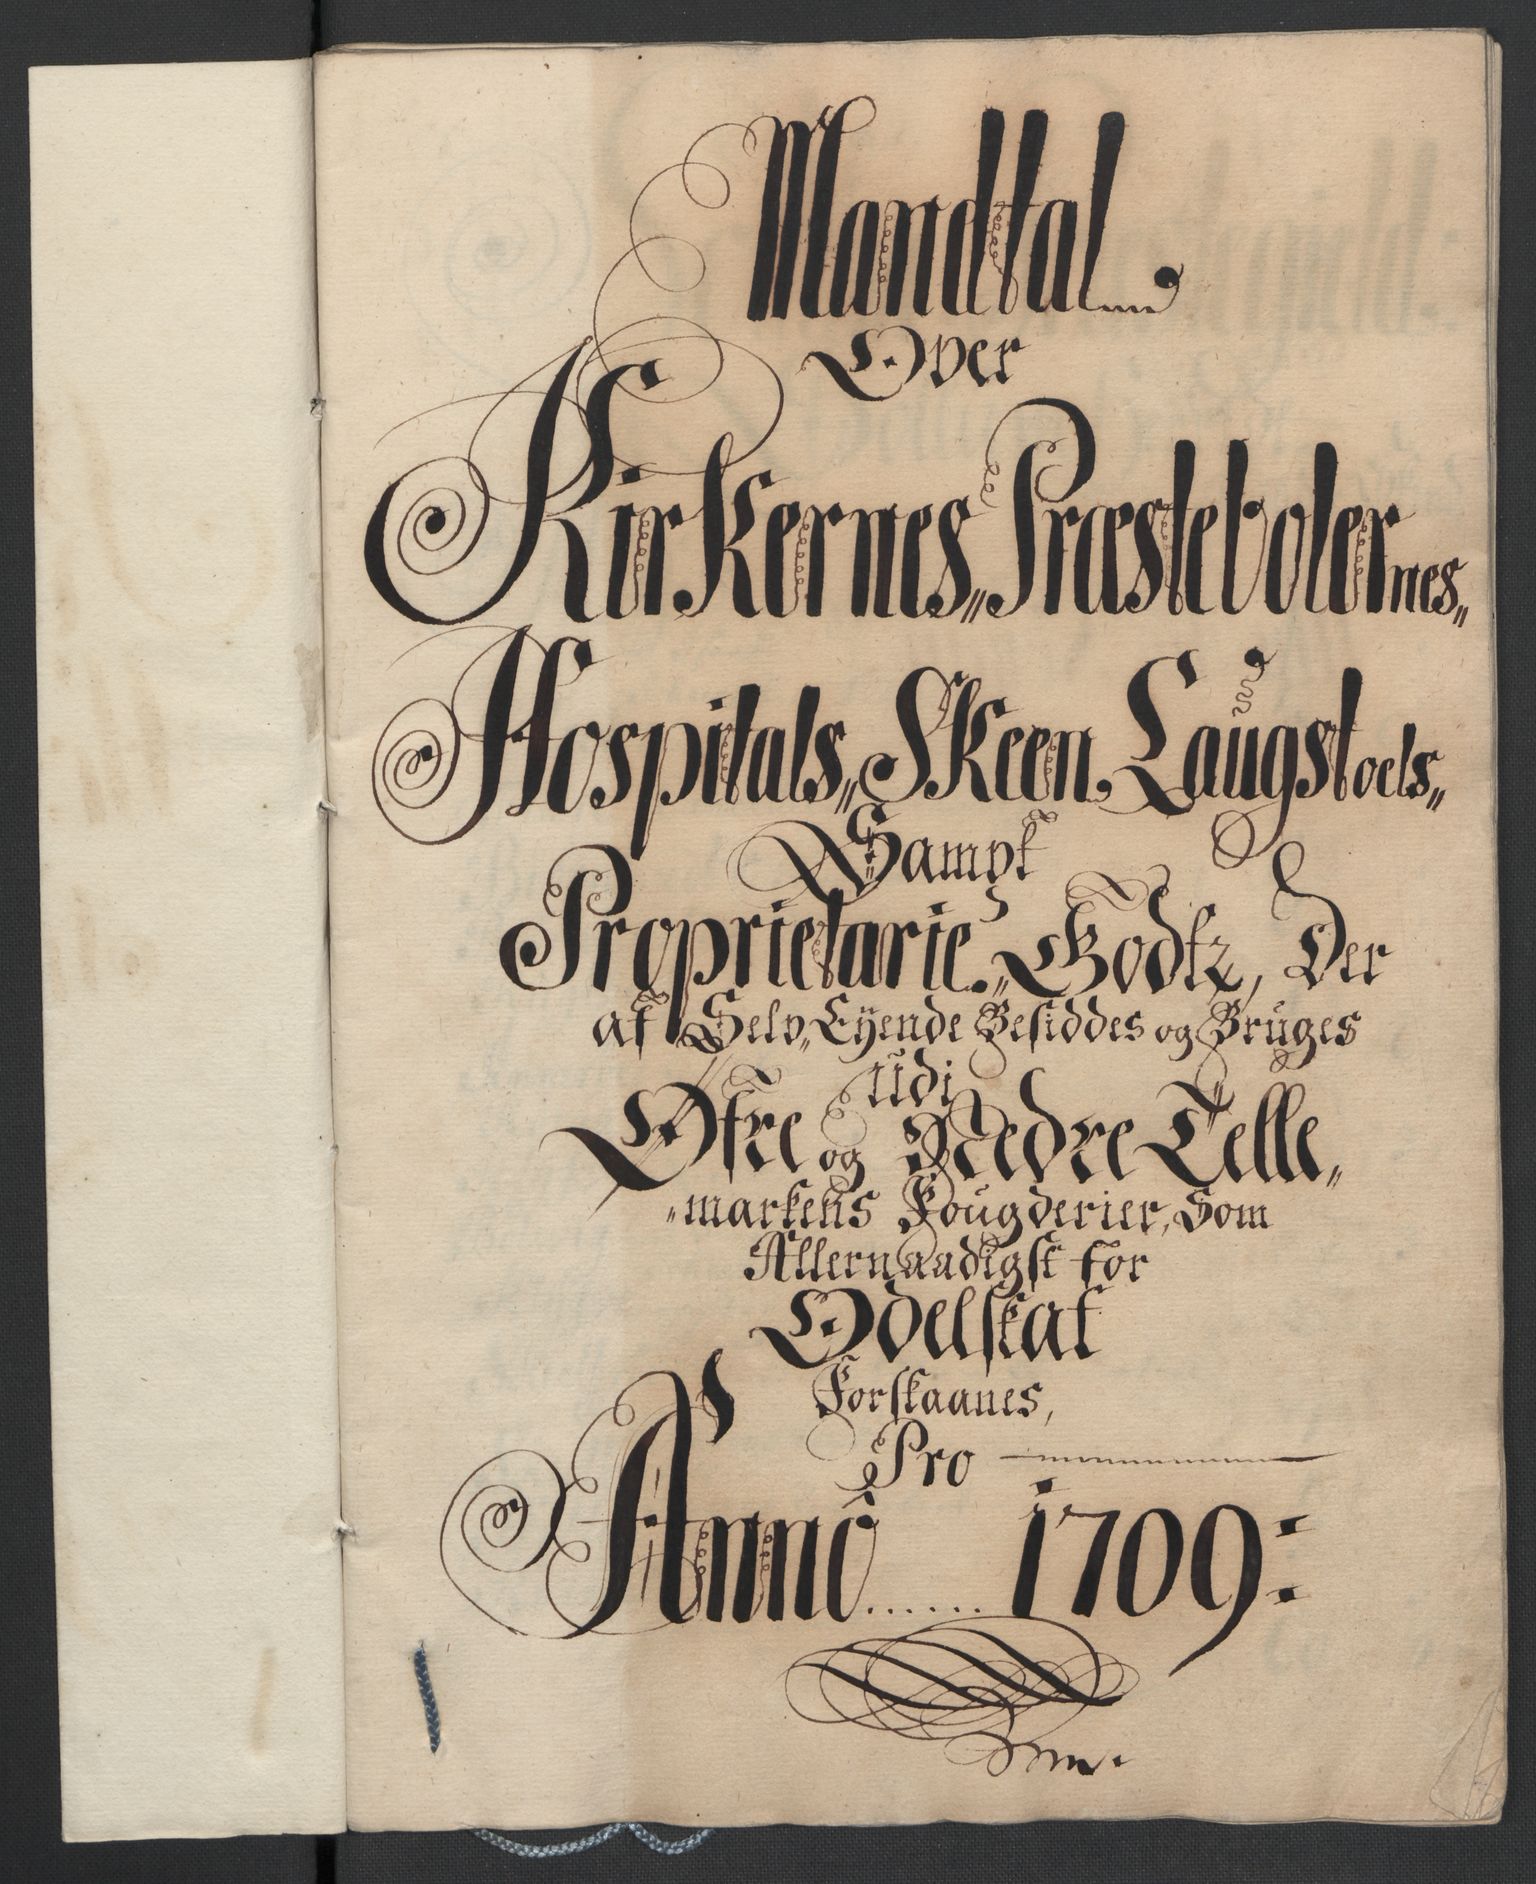 Mandtal
Over
Kirkernes„ Præstebolernes„
Hospitals„ Skeen Laugstoels„
Sampt
Proprietarie„ Godtz, Der
af Selv„Eÿende Besiddes og Bruges
udi
Øfre og Nedre Telle„
„markens Fougderier, Som
Allernaadigst for
Odelskat
Forskaanes,
Pro
Anno ...... 1709: